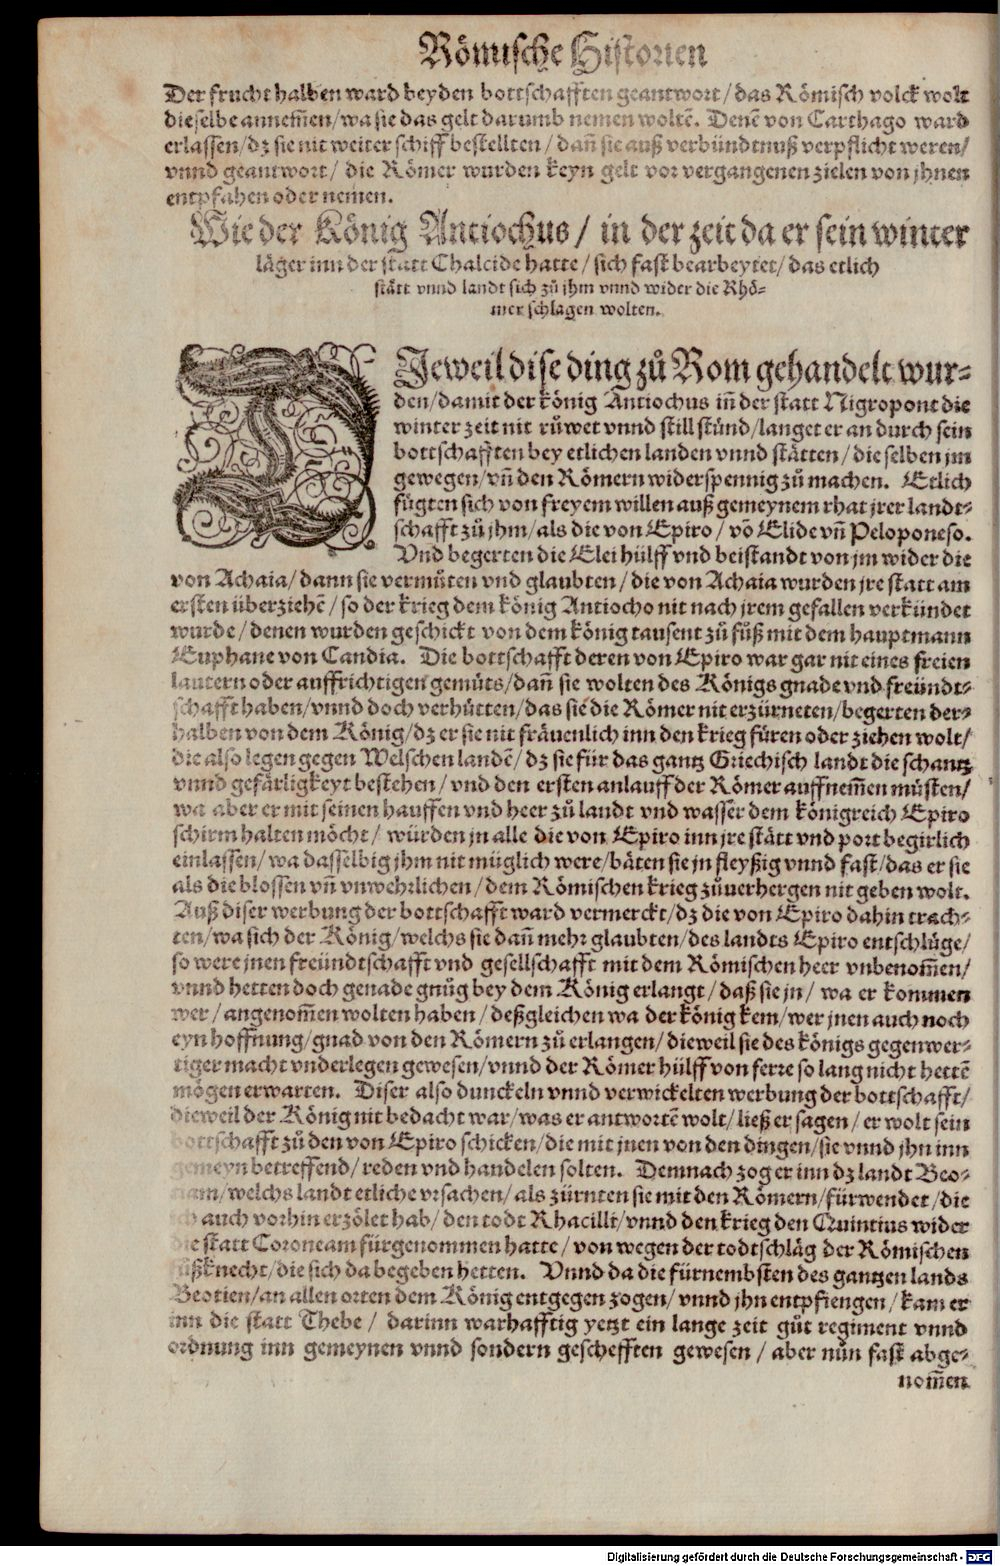 Römische Historien
Der frucht halben ward beyden bottschafften geantwort / das Römisch volck wolt
dieselbe annem̃en / wa sie das gelt darumb nemen woltẽ. Denẽ von Carthago ward
erlassen / dz sie nit weiter schiff bestellten / dañ sie auß verbündtnuß verpflicht weren /
vnnd geantwort / die Römer wurden keyn gelt vor vergangenen zielen von jhnen
entpfahen oder nemen.
Wie der König Antiochus / in der zeit da er sein winter
läger inn der statt Chalcide hatte / sich fast bearbeytet / das etlich
stätt vnnd landt sich zů jhm vnnd wider die Rhö-
mer schlagen wolten.
DJeweil dise ding zů Rom gehandelt wur-
den / damit der könig Antiochus iñ der statt Nigropont die
winter zeit nit růwet vnnd still stůnd / langet er an durch sein
bottschafften bey etlichen landen vnnd stätten / die selben jm
gewegen / vñ den Römern widerspennig zů machen. Etlich
fügten sich von freyem willen auß gemeynem rhat jrer landt-
schafft zů jhm / als die von Epiro / võ Elide vñ Peloponeso.
Vnd begerten die Elei hülff vnd beistandt von jm wider die
von Achaia / dann sie vermůten vnd glaubten / die von Achaia wurden jre statt am
ersten überziehẽ / so der krieg dem könig Antiocho nit nach jrem gefallen verkündet
wurde / denen wurden geschickt von dem könig tausent zů fůß mit dem hauptmann
Euphane von Candia. Die bottschafft deren von Epiro war gar nit eines freien
lautern oder auffrichtigen gemüts / dañ sie wolten des Königs gnade vnd freündt-
schafft haben / vnnd doch verhütten / das sie die Römer nit erzürneten / begerten der-
halben von dem König / dz er sie nit fräuenlich inn den krieg füren oder ziehen wolt /
die also legen gegen Welschen landẽ / dz sie für das gantz Griechisch landt die schantz
vnnd gefärligkeyt bestehen / vnd den ersten anlauff der Römer auffnem̃en müsten /
wa aber er mit seinen hauffen vnd heer zů landt vnd wasser dem königreich Epiro
schirm halten möcht / würden jn alle die von Epiro inn jre stätt vnd port begirlich
einlassen / wa dasselbig jhm nit müglich were / bäten sie jn fleyßig vnnd fast / das er sie
als die blossen vñ vnwehrlichen / dem Römischen krieg zůuerhergen nit geben wolt.
Auß diser werbung der bottschafft ward vermerckt / dz die von Epiro dahin trach-
ten / wa sich der König / welchs sie dañ mehr glaubten / des landts Epiro entschlüge /
so were jnen freündtschafft vnd gesellschafft mit dem Römischen heer vnbenom̃en /
vnnd hetten doch genade gnůg bey dem König erlangt / daß sie jn / wa er kommen
wer / angenom̃en wolten haben / deßgleichen wa der könig kem / wer jnen auch noch
eyn hoffnung / gnad von den Römern zů erlangen / dieweil sie des königs gegenwer-
tiger macht vnderlegen gewesen / vnnd der Römer hülff von ferre so lang nicht hettẽ
mögen erwarten. Diser also dunckeln vnnd verwickelten werbung der bottschafft /
dieweil der König nit bedacht war / was er antwortẽ wolt / ließ er sagen / er wolt sein
bottschafft zů den von Epiro schicken / die mit jnen von den dingen / sie vnnd jhn inn
gemeyn betreffend / reden vnd handelen solten. Demnach zog er inn dz landt Beo-
tiam / welchs landt etliche vrsachen / als zürnten sie mit den Römern / fürwendet / die
ich auch vorhin erzölet hab / den todt Rhacilli / vnnd den krieg den Quintius wider
die statt Coroneam fürgenommen hatte / von wegen der todtschläg der Römischen
fůßknecht / die sich da begeben hetten. Vnnd da die fürnembsten des gantzen lands
Beotien / an allen orten dem König entgegen zogen / vnnd jhn entpfiengen / kam er
inn die statt Thebe / darinn warhafftig yetzt ein lange zeit gůt regiment vnnd
ordnung inn gemeynen vnnd sondern geschefften gewesen / aber nůn fast abge-
nom̃en
Digitalisierung gefördert durch die Deutsche Forschungsgemeinschaft - DFG